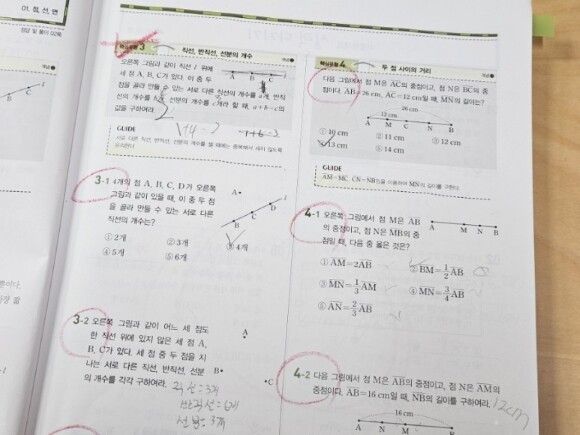 01. 점, 선, 면
정답 및 풀이 02쪽
핵심유형 3 직선, 반직선, 선분의 개수
오른쪽 그림과 같이 직선 l 위에
세 점 A, B, C가 있다. 이 중 두
점을 골라 만들 수 있는 서로 다른 직선의 개수를 a개, 반직
선의 개수를 b개, 선분의 개수를 c개라 할 때, a+b-c의
값을 구하여라.
A B C l
GUIDE
서로 다른 직선, 반직선, 선분의 개수를 셀 때에는 중복해서 세지 않도록
3-1 4개의 점 A, B, C, D가 오른쪽
그림과 같이 있을 때, 이 중 두 점
을 골라 만들 수 있는 서로 다른
직선의 개수는?
A
B C D l
① 2개 ② 3개 ③ 4개
④ 5개 ⑤ 6개
3-2 오른쪽 그림과 같이 어느 세 점도
한 직선 위에 있지 않은 세 점 A,
B, C가 있다. 세 점 중 두 점을 지
나는 서로 다른 직선, 반직선, 선분
의 개수를 각각 구하여라.
A
B
C
직선=3개
반직선=6개
선분=3개
핵심유형 4 두 점 사이의 거리
다음 그림에서 점 M은 AC의 중점이고, 점 N은 BC의 중
점이다. AB=26 cm, AC=12 cm일 때, MN의 길이는?
26 cm
12 cm
A M C N B
① 10 cm ② 11 cm ③ 12 cm
④ 13 cm ⑤ 14 cm
GUIDE
AM=MC, CN=NB임을 이용하여 MN의 길이를 구한다.
4-1 오른쪽 그림에서 점 M은 AB
의 중점이고, 점 N은 MB의 중
점일 때, 다음 중 옳은 것은?
A M N B
① AM=2AB ② BM=1/2 AB
③ MN=1/3 AM ④ MN=3/4 AB
⑤ AN=2/3 AB
4-2 다음 그림에서 점 M은 AB의 중점이고, 점 N은 AM의
중점이다. AB=16 cm일 때, NB의 길이를 구하여라.
12cm
16 cm
A N M B